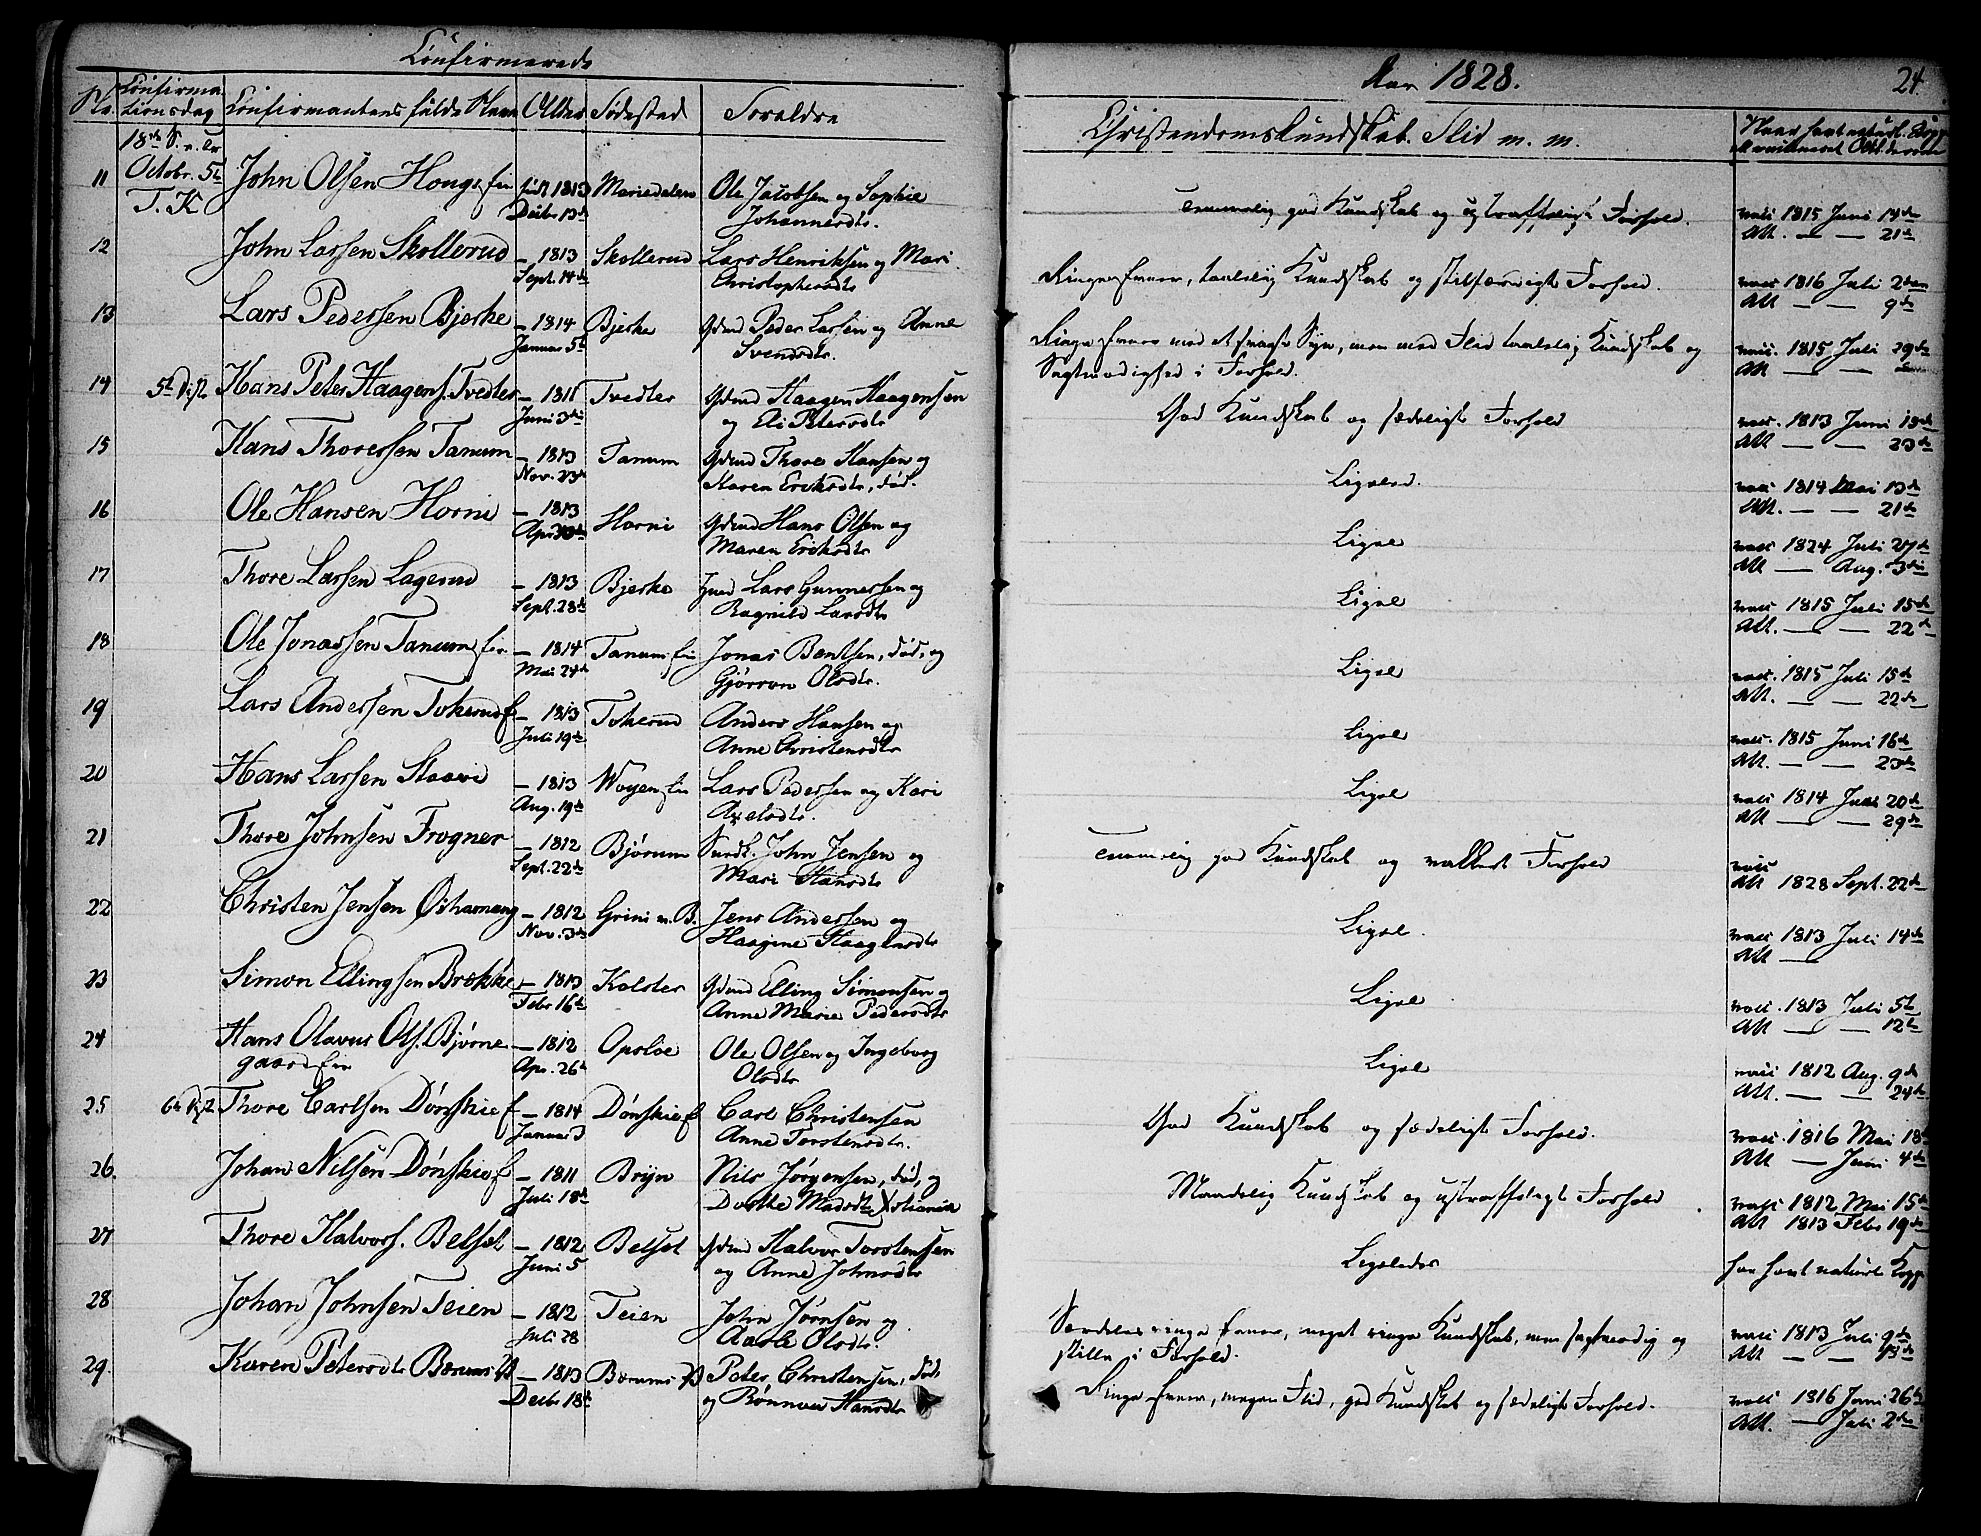 Confirmerede
Aar 1828.
24
No.
Confirmationsdag
Confirmantens fulde Navn
Alder
Fødested
Foreldre
Christendomskundskab. Flid m. m.
Naar havt naturl. Kopp.
Vaccineret
18de S. e. Tr
Octobr. 5te
T. K
11 John Olsen Hougs fin
født 1813 Decbr 13de
Mariedalen
Ole Jacobsen og Sophie
Johannesdtr.
Temmelig god Kundskab og ustraffeligt Forhold.
vacc 1815 Juni 14de
Att. — — 21de
12 John Larsen Skollerud
— 1813 Sept. 14de
Skollerud
Lars Henriksen og Mari
Christophersdtr
Ringe Evner, taalelig Kundskab og stilfærdigt Forhold.
vacc 1816 Juli 2den
Att — — 9de
13 Lars Pedersen Bjerke
— 1814 Januar 5te
Bjerke
Gdmd Peder Larsen og Anne
Svensdtr.
Ringe Evner med et svagt Syn, men med Flid taalelig Kundskab og
Sagtmodighed i Forhold.
vacc. 1815 Juli 29de
Att — —
14 5te Dist. Hans Peter Haagens. Tvedter
— 1811 Juni 3die
Tvedter
Gdmd Haagen Haagensen
og Eli Petersdtr
God Kundskab og sædeligt Forhold
vacc. 1813 Juni 13de
Att — — 23de
15 Hans Thoresen Tanum
— 1813 Nov. 23de
Tanum
Gdmd Thore Hansen og
Maren Ericksdtr, død.
Ligeled.
vacc 1814 Mai 13de
Att. — — 21de
16 Ole Hansen Horni
— 1813 Apr 30de
Horni
Gdmd Hans Olsen og
Maren Ericksdtr
Ligel
vacc 1824 Juli 27de
Att — Aug. 3die
17 Thore Larsen Lagerud
— 1813 Sept. 28de
Bjerke
Hmd Lars Gunnersen og
Ragnild Larsdtr
Ligel
vacc 1815 Juli 15de
Att. — — 22de
18 Ole Jonassen Tanum fin
— 1814 Mai 24de
Tanum fin
Jonas Bentsen, død, og
Gjørron Olsdtr.
Ligel
vacc. 1815 Juli 15de
Att — — 22de
19 Lars Andersen Tokerud f
— 1813 Juli 19de
Tokerud
Anders Hansen og
Anne Christensdtr
Ligel
vacc. 1815 Juni 16de
Att. — — 23de
20 Hans Larsen Staavi
— 1813 Aug. 19de
Wøyen fin
Lars Pedersen og Kari
Axelsdtr.
Ligel
vacc 1814 Juni 20de
Att — — 29de
21 Thore Johnsen Frogner
— 1812 Sept. 22de
Bjørum
John Jensen og
Mari Hansdtr
Temmelig god Kundskab og vakkert Forhold
vacc
Att 1828 Sept. 22de
22 Christen Jensen Østamang
— 1812 Nov. 3de
Grini v. B.
Jens Andersen og
Haagine Haagensdtr
Ligel.
vacc 1813 Juli 14de
Att —
23 Simon Ellingsen Brække
— 1813 Febr 16de
Kolster
Gdmd Elling Simonsen og
Anne Marie Pedersdtr
Ligel
vacc. 1813 Juli 5te
Att — — 12te
24 Hans Olavus Ols. Bjørne
gaard fin
— 1812 Apr. 26de
Opsloe
Ole Olsen og Ingeborg
Olsdtr
Ligel
vacc 1812 Aug. 9de
Att. — — 24de
25 6te Dist Thore Carlsen Dønskie f
— 1814 Januar 3
Dønskie f
Carl Christensen
Anne Torstensdtr.
God Kundskab og sædeligt Forhold.
vacc. 1816 Mai 18de
Att — Juni 4de
26. Johan Nilsen Dønskie f
— 1811 Juli 18de
Bryn
Nils Jørgensen, død, og
Dorthe Madsdtr Xstiania
Maadelig Kundskab og ustraffeligt Forhold
vacc 1812 Mai 15de
Att 1813 Febr 19de
27 Thore Halvors. Belset
— 1812 Juni 5
Belset
Gdmd Halvor Torstensen
og Anne Johnsdtr
Ligeledes
har havt naturl Kopp.
28 Johan Johnsen Teien
— 1812 Juli 28
Teien
John Jørnsen og
Aarle Olsdtr.
Særdeles ringe Evner, meget ringe Kundskab, men sagtmodig og
stille i Forhold.
vacc 1813 Juli 9de
Att — — 13de
29. Karen Petersdtr Bærums V
— 1813 Decbr 18de
Bærums V
Peter Christensen, død,
og Rønnou Hansdtr
Ringe Evner, megen Flid, god Kundskab og sædeligt Forhold.
vacc 1816 Juni 26de
Att. — Juli 2den